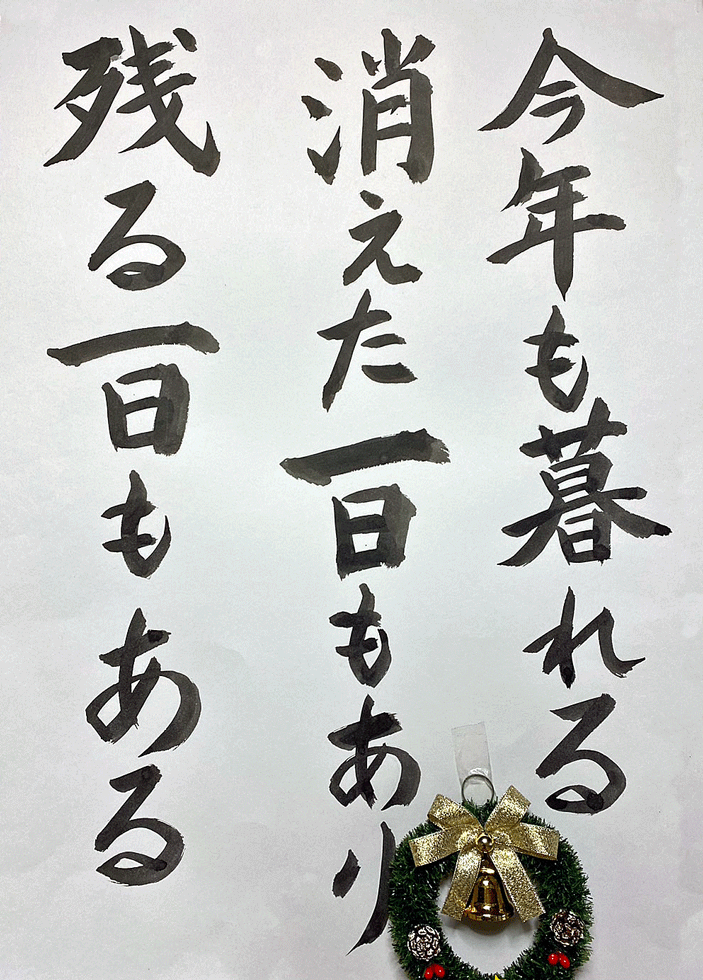 今年も暮れる
消えた一日もあり
残る一日もある